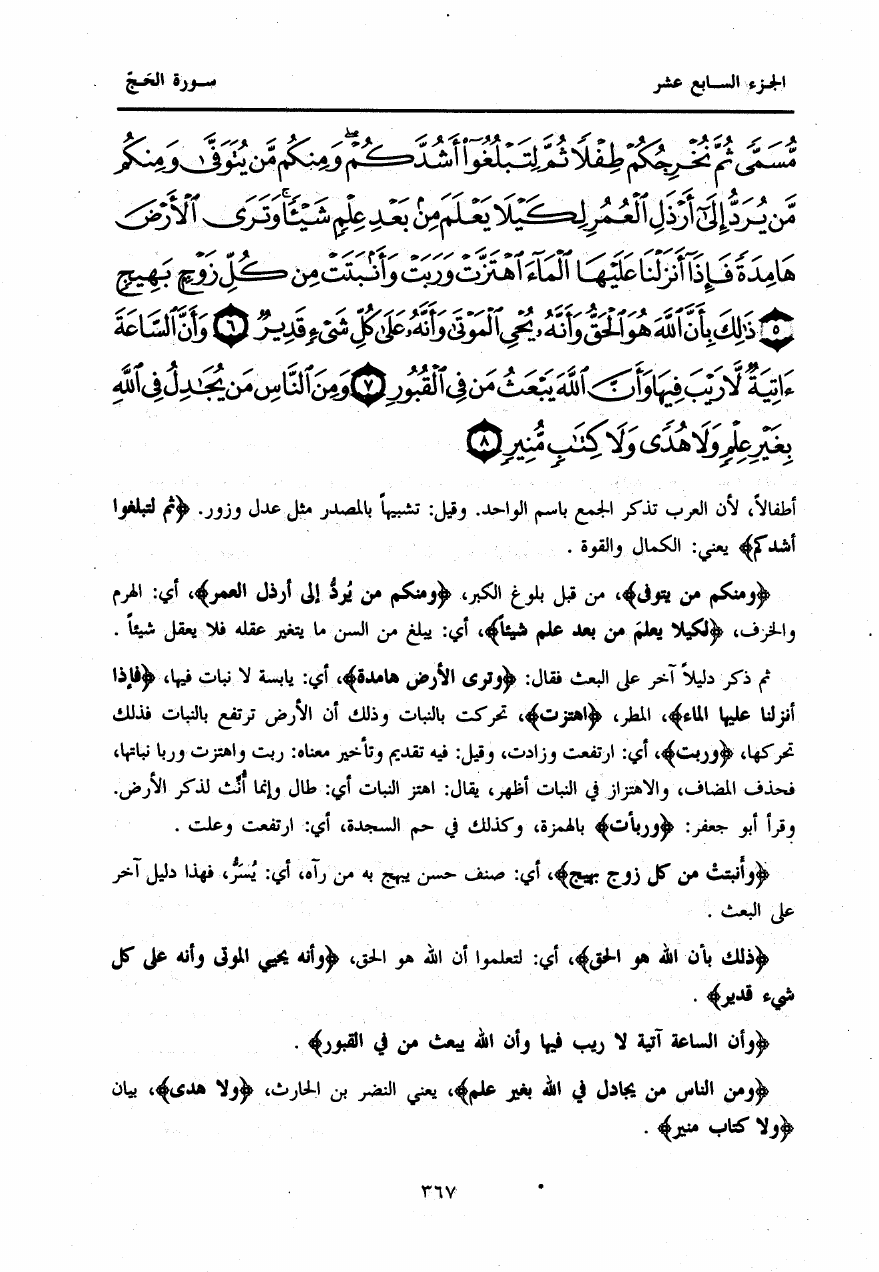 الجزء السابع عشر
سورة الحَجّ
مُّسَمًّى ثُمَّ نُخْرِجُكُمْ طِفْلًا ثُمَّ لِتَبْلُغُوٓا۟ أَشُدَّكُمْ ۖ وَمِنكُم مَّن يُتَوَفَّىٰ وَمِنكُم
مَّن يُرَدُّ إِلَىٰٓ أَرْذَلِ ٱلْعُمُرِ لِكَيْلَا يَعْلَمَ مِنۢ بَعْدِ عِلْمٍ شَيْـًٔا ۚ وَتَرَى ٱلْأَرْضَ
هَامِدَةً فَإِذَآ أَنزَلْنَا عَلَيْهَا ٱلْمَآءَ ٱهْتَزَّتْ وَرَبَتْ وَأَنۢبَتَتْ مِن كُلِّ زَوْجٍۭ بَهِيجٍ
﴿٥﴾ ذَٰلِكَ بِأَنَّ ٱللَّهَ هُوَ ٱلْحَقُّ وَأَنَّهُۥ يُحْىِ ٱلْمَوْتَىٰ وَأَنَّهُۥ عَلَىٰ كُلِّ شَىْءٍ قَدِيرٌ ﴿٦﴾ وَأَنَّ ٱلسَّاعَةَ
ءَاتِيَةٌ لَّا رَيْبَ فِيهَا وَأَنَّ ٱللَّهَ يَبْعَثُ مَن فِى ٱلْقُبُورِ ﴿٧﴾ وَمِنَ ٱلنَّاسِ مَن يُجَـٰدِلُ فِى ٱللَّهِ
بِغَيْرِ عِلْمٍ وَلَا هُدًى وَلَا كِتَـٰبٍ مُّنِيرٍ ﴿٨﴾
أطفالاً، لأن العرب تذكر الجمع باسم الواحد. وقيل: تشبيهاً بالمصدر مثل عدل وزور. ﴿ثم لتبلغوا
أشدكم﴾ يعني: الكمال والقوة .
﴿ومنكم من يتوفى﴾، من قبل بلوغ الكبر، ﴿ومنكم من يُردُّ إلى أرذل العمر﴾، أي: الهرم
والخرف، ﴿لكيلا يعلمَ من بعد علم شيئاً﴾، أي: يبلغ من السن ما يتغير عقله فلا يعقل شيئاً .
ثم ذكر دليلاً آخر على البعث فقال: ﴿وترى الأرض هامدة﴾، أي: يابسة لا نبات فيها، ﴿فإذا
أنزلنا عليها الماء﴾، المطر، ﴿اهتزت﴾، تحركت بالنبات وذلك أن الأرض ترتفع بالنبات فذلك
تحركها، ﴿وربت﴾، أي: ارتفعت وزادت، وقيل: فيه تقديم وتأخير معناه: ربت واهتزت وربا نباتها،
فحذف المضاف، والاهتزاز في النبات أظهر، يقال: اهتز النبات أي: طال وإنما أُنِّث لذكر الأرض.
وقرأ أبو جعفر: ﴿وربأت﴾ بالهمزة، وكذلك في حم السجدة، أي: ارتفعت وعلت .
﴿وأَنبتتْ من كل زوج بهيج﴾، أي: صنف حسن يبهج به من رآه، أي: يُسَرُّ، فهذا دليل آخر
على البعث .
﴿ذلك بأن الله هو الحق﴾، أي: لتعلموا أن الله هو الحق، ﴿وأنه يحيي الموتى وأنه على كل
شيء قدير﴾ .
﴿وأن الساعة آتية لا ريب فيها وأن الله يبعث من في القبور﴾ .
﴿ومن الناس من يجادل في الله بغير علم﴾، يعني النضر بن الحارث، ﴿ولا هدى﴾، بيان
﴿ولا كتاب منير﴾ .
٣٦٧